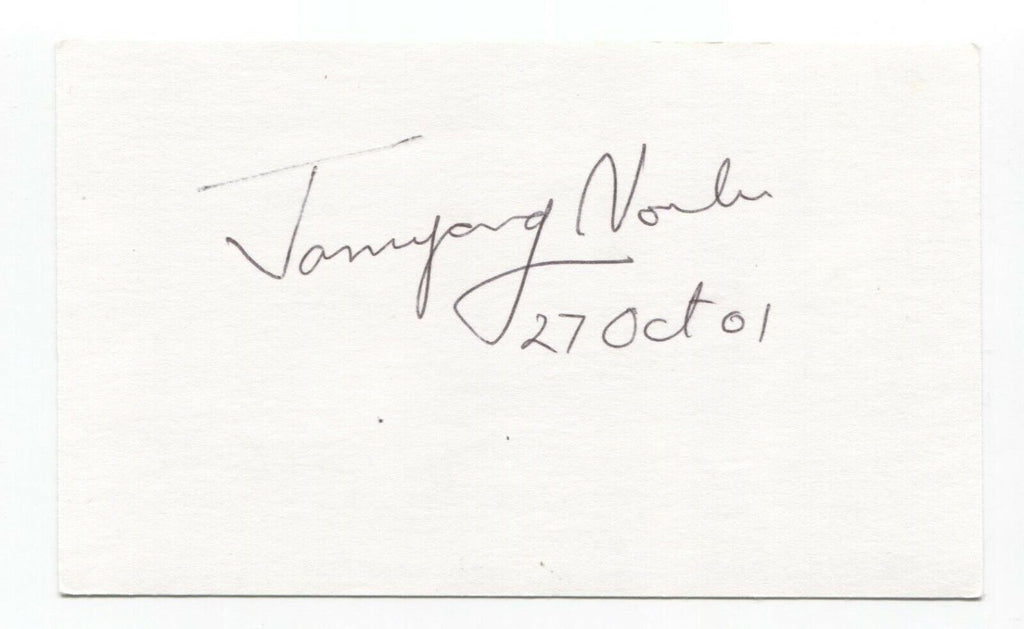 Jamyang Norbu
27 Oct 01